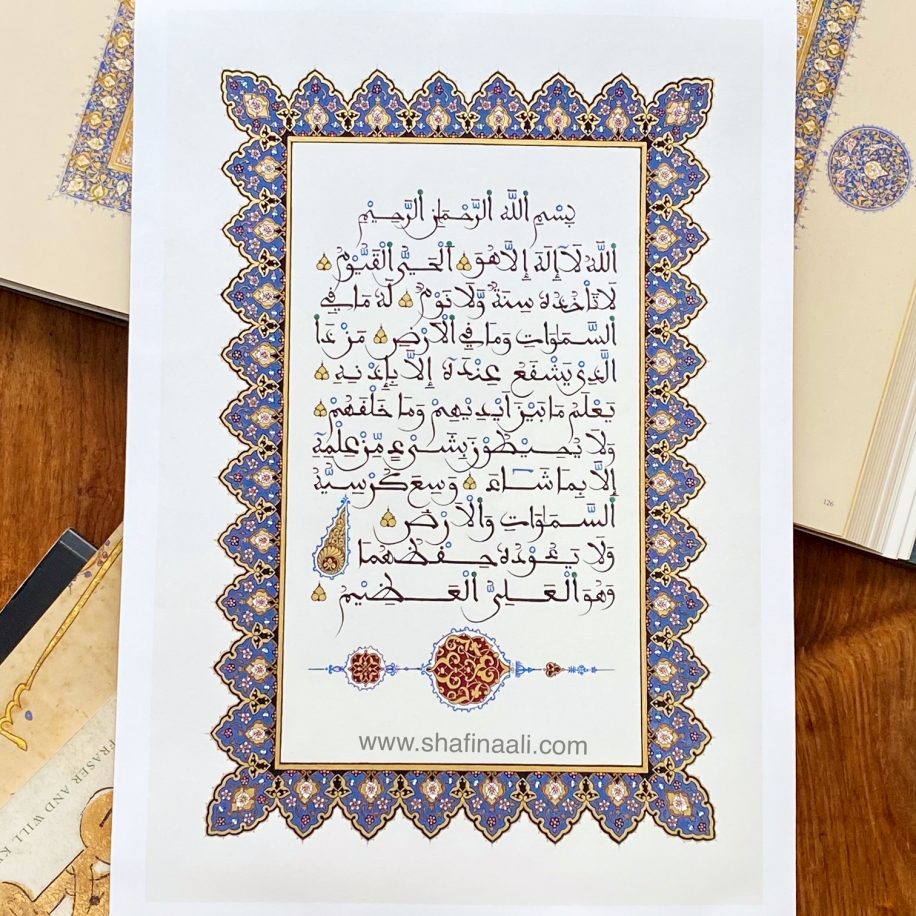 بِسْمِ اللَّهِ الرَّحْمَٰنِ الرَّحِيمِ
اللَّهُ لَآ إِلَٰهَ إِلَّا هُوَ الْحَيُّ الْقَيُّومُ
لَا تَأْخُذُهُ سِنَةٌ وَّلَا نَوْمٌ لَهُ مَا فِي
السَّمَاوَاتِ وَمَا فِي الْأَرْضِ مَنْ ذَا
الَّذِي يَشْفَعُ عِنْدَهُ إِلَّا بِإِذْنِهِ
يَعْلَمُ مَا بَيْنَ أَيْدِيهِمْ وَمَا خَلْفَهُمْ
وَلَا يُحِيطُونَ بِشَيْءٍ مِّنْ عِلْمِهِ
إِلَّا بِمَا شَاءَ وَسِعَ كُرْسِيُّهُ
السَّمَاوَاتِ وَالْأَرْضَ
وَلَا يَئُودُهُ حِفْظُهُمَا
وَهُوَ الْعَلِيُّ الْعَظِيمُ
www.shafinaali.com
126
FRASER AND WILL